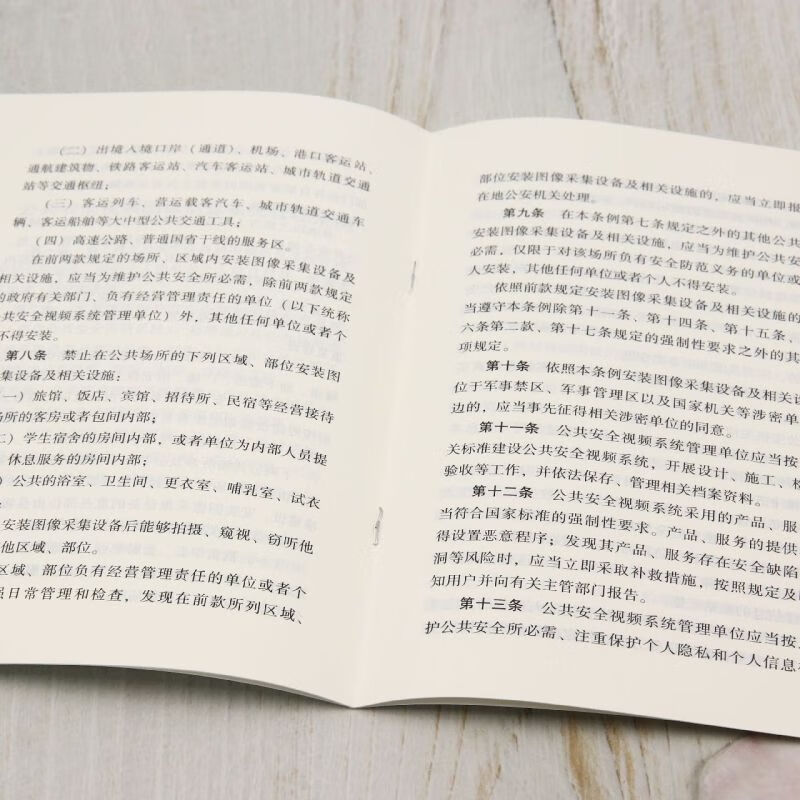 （二）出境入境口岸（通道）、机场、港口客运站、
通航建筑物、铁路客运站、汽车客运站、城市轨道交通
站等交通枢纽；
（三）客运列车、营运载客汽车、城市轨道交通车
辆、客运船舶等大中型公共交通工具；
（四）高速公路、普通国省干线的服务区。
在前两款规定的场所、区域内安装图像采集设备及
相关设施，应当为维护公共安全所必需，除前两款规定
的政府有关部门、负有经营管理责任的单位（以下统称
公共安全视频系统管理单位）外，其他任何单位或者个
不得安装。
第八条 禁止在公共场所的下列区域、部位安装图
集设备及相关设施：
（一）旅馆、饭店、宾馆、招待所、民宿等经营接待
场所的客房或者包间内部；
二）学生宿舍的房间内部，或者单位为内部人员提
休息服务的房间内部；
）公共的浴室、卫生间、更衣室、哺乳室、试衣
；
安装图像采集设备后能够拍摄、窥视、窃听他
他区域、部位。
区域、部位负有经营管理责任的单位或者个
强日常管理和检查，发现在前款所列区域、
部位安装图像采集设备及相关设施的，应当立即报
在地公安机关处理。
第九条 在本条例第七条规定之外的其他公共
安装图像采集设备及相关设施，应当为维护公共安
必需，仅限于对该场所负有安全防范义务的单位或
人安装，其他任何单位或者个人不得安装。
依照前款规定安装图像采集设备及相关设施的
当遵守本条例除第十一条、第十四条、第十五条、
六条第二款、第十七条规定的强制性要求之外的其
项规定。
第十条 依照本条例安装图像采集设备及相关设
位于军事禁区、军事管理区以及国家机关等涉密单
边的，应当事先征得相关涉密单位的同意。
第十一条 公共安全视频系统管理单位应当按
关标准建设公共安全视频系统，开展设计、施工、检
验收等工作，并依法保存、管理相关档案资料。
第十二条 公共安全视频系统采用的产品、服
当符合国家标准的强制性要求。产品、服务的提供
得设置恶意程序；发现其产品、服务存在安全缺陷
洞等风险时，应当立即采取补救措施，按照规定及
知用户并向有关主管部门报告。
第十三条 公共安全视频系统管理单位应当按
护公共安全所必需、注重保护个人隐私和个人信息